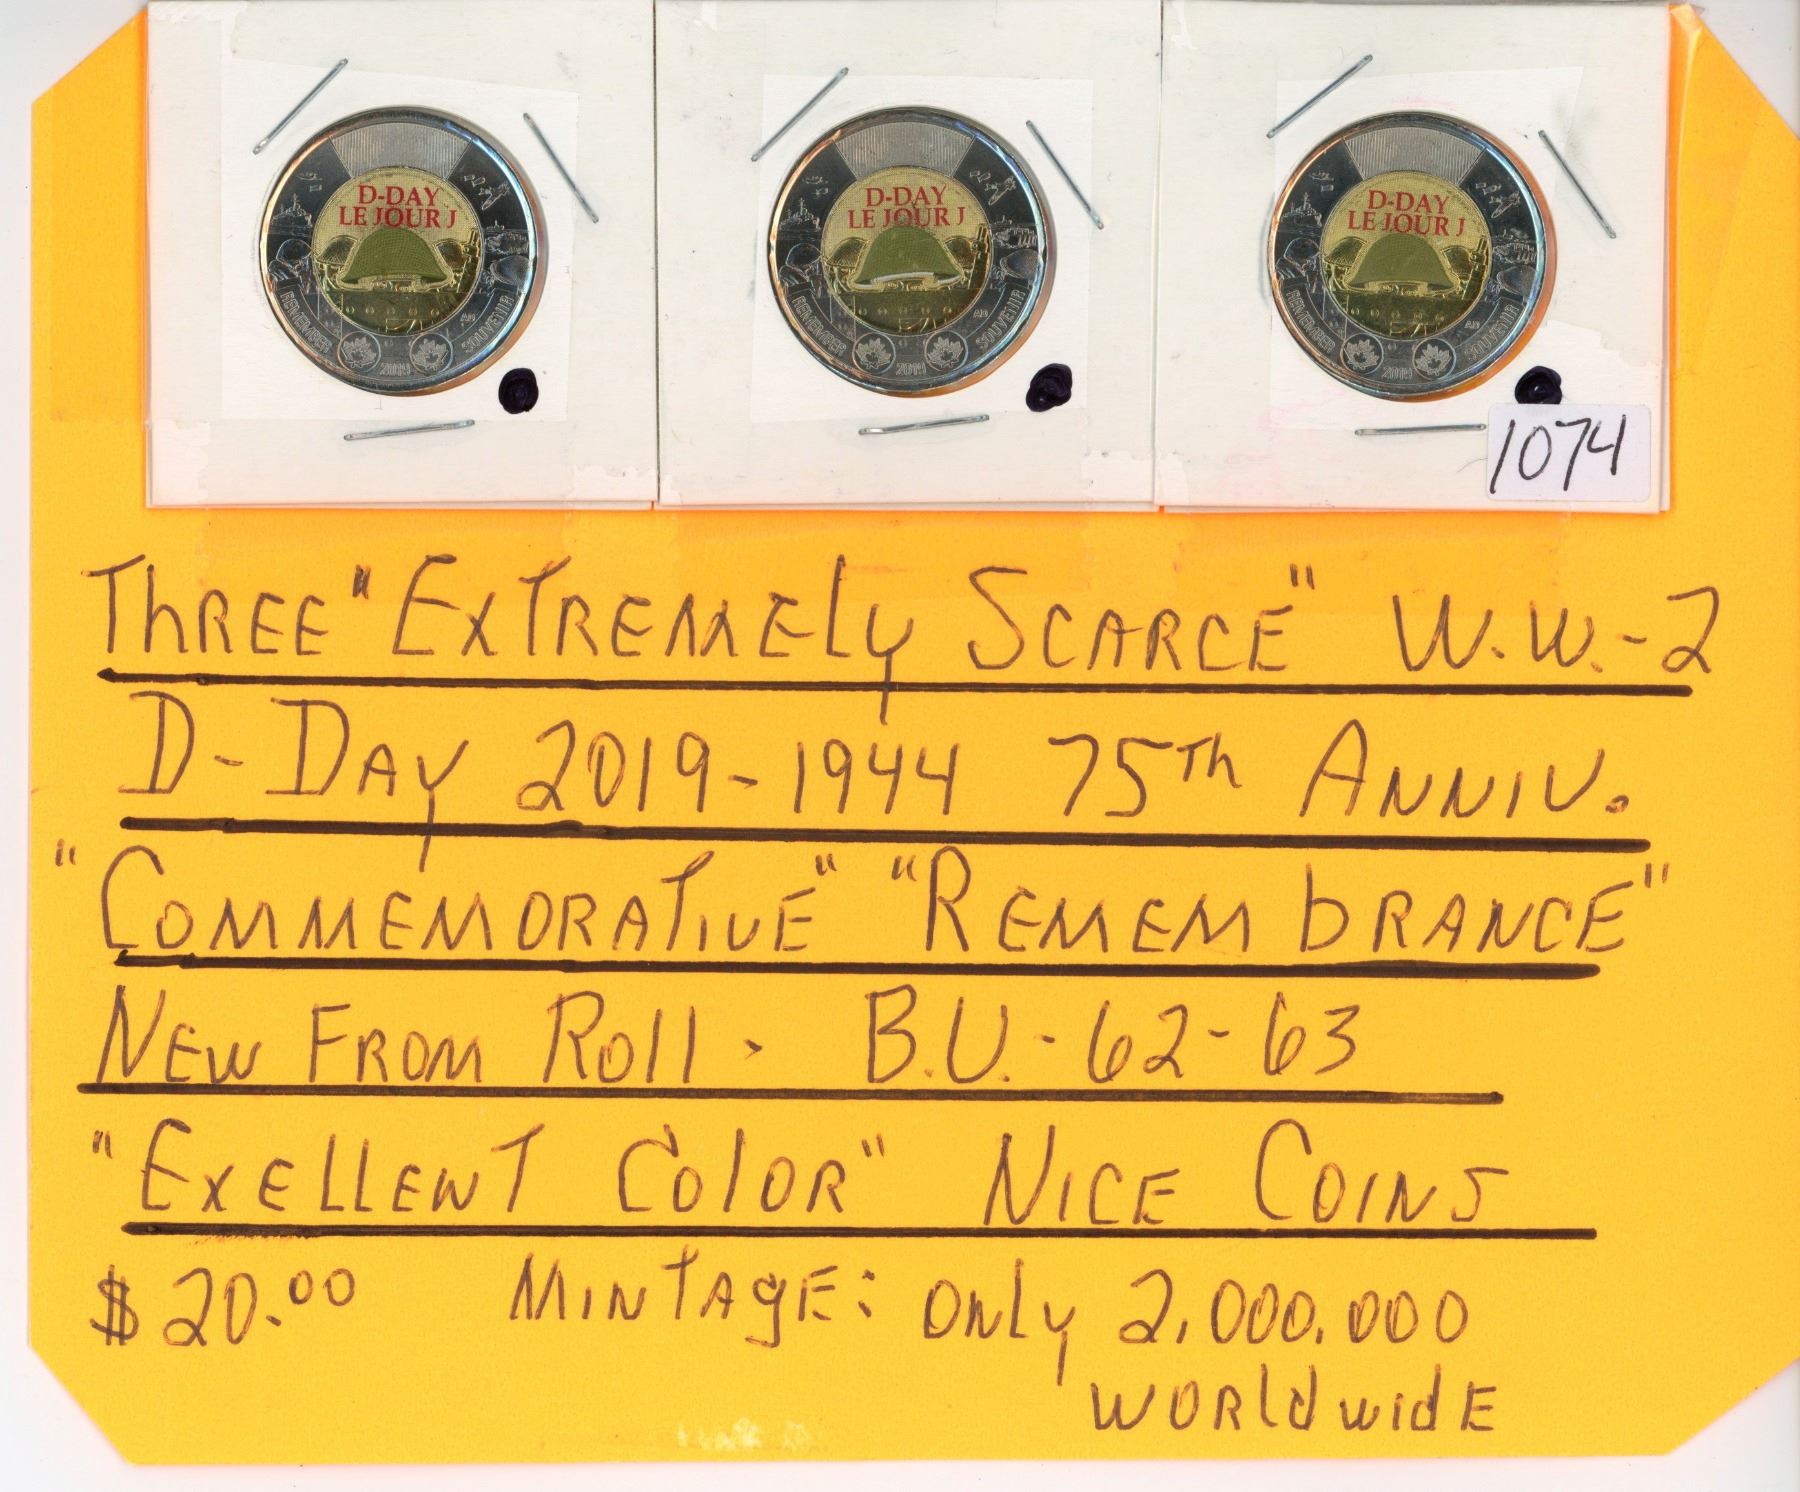 D-DAY
LE JOUR J
REMEMBER
SOUVENIR
AD
2019
D-DAY
LE JOUR J
REMEMBER
SOUVENIR
AD
2019
D-DAY
LE JOUR J
REMEMBER
SOUVENIR
AD
2019
1074
THREE "EXTREMELY SCARCE" W.W.-2
D-DAY 2019-1944 75Th ANNIV.
"COMMEMORATIVE" "REMEMbRANCE"
NEW FROM ROll - B.U.-62-63
"EXELLENT COlOR" NICE COINS
$20.00 MINTAgE: ONly 2,000,000
WORldwidE